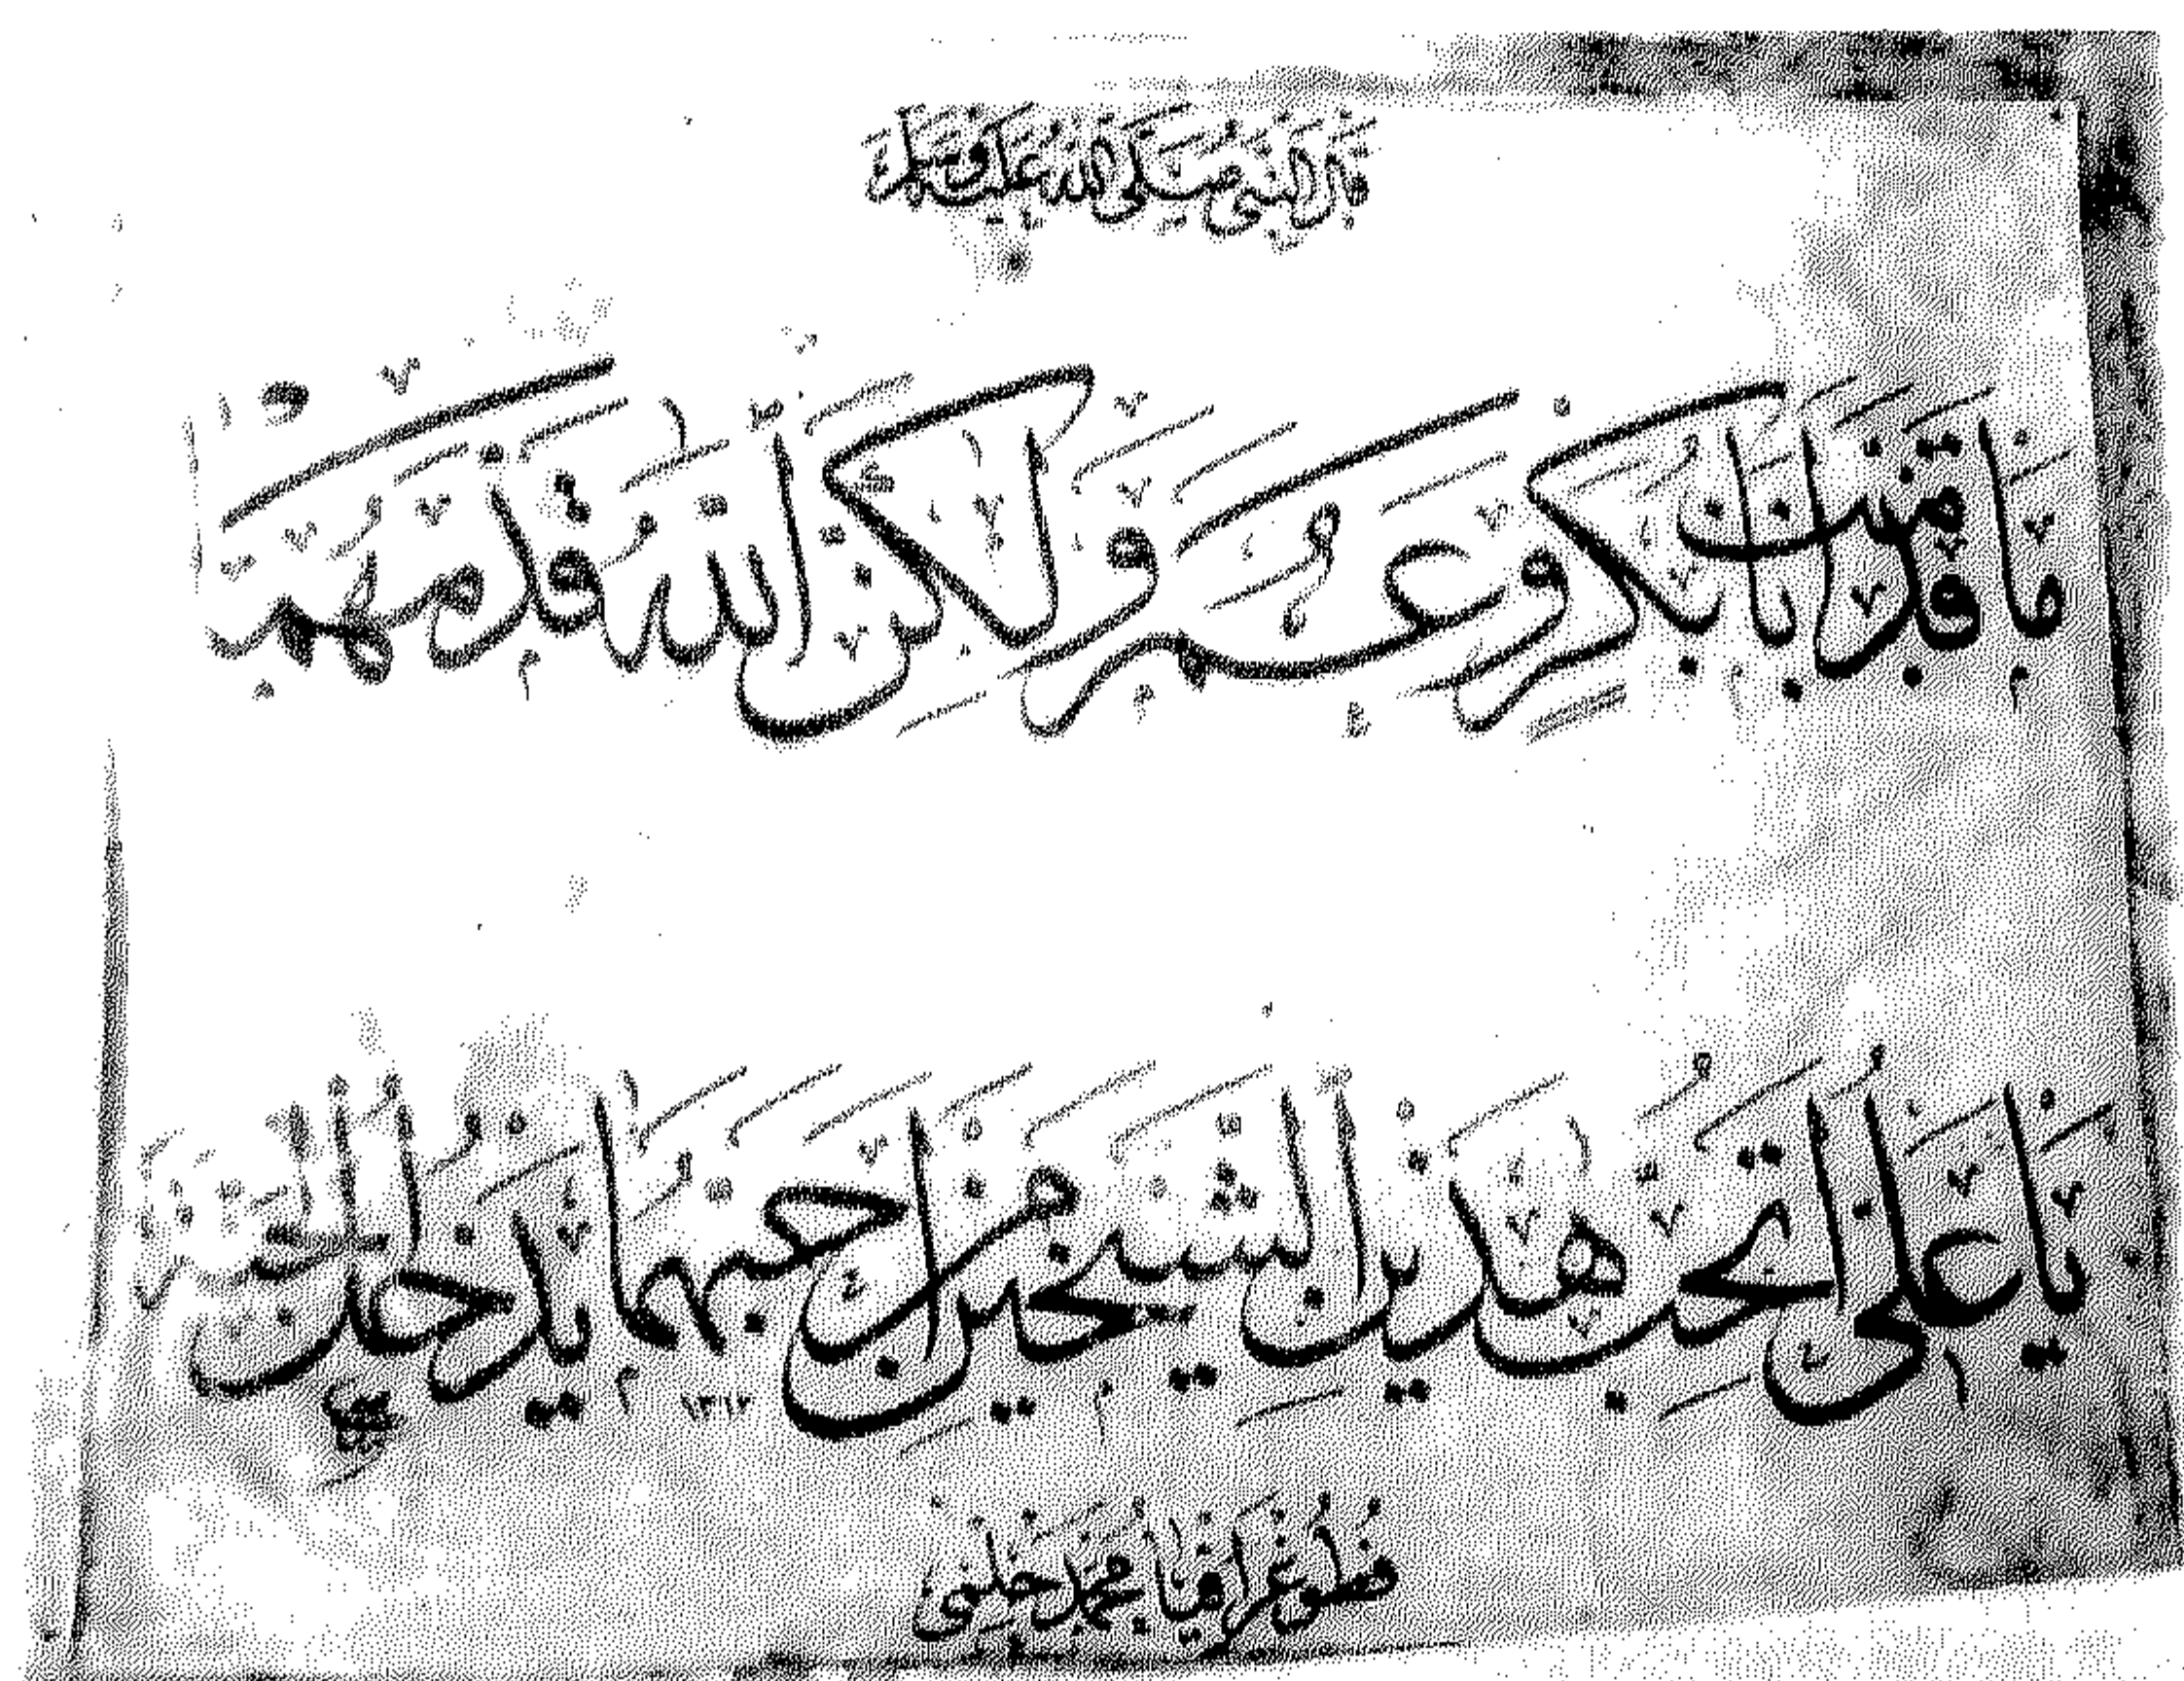 قال النبي صلى الله عليه وسلم
ما قدمت أبا بكر وعمر ولكن الله قدمهما
يا علي أتحب هذين الشيخين من احبهما يدخل الجنة
١٣١٢
فطوغرافيا محمد خلفى